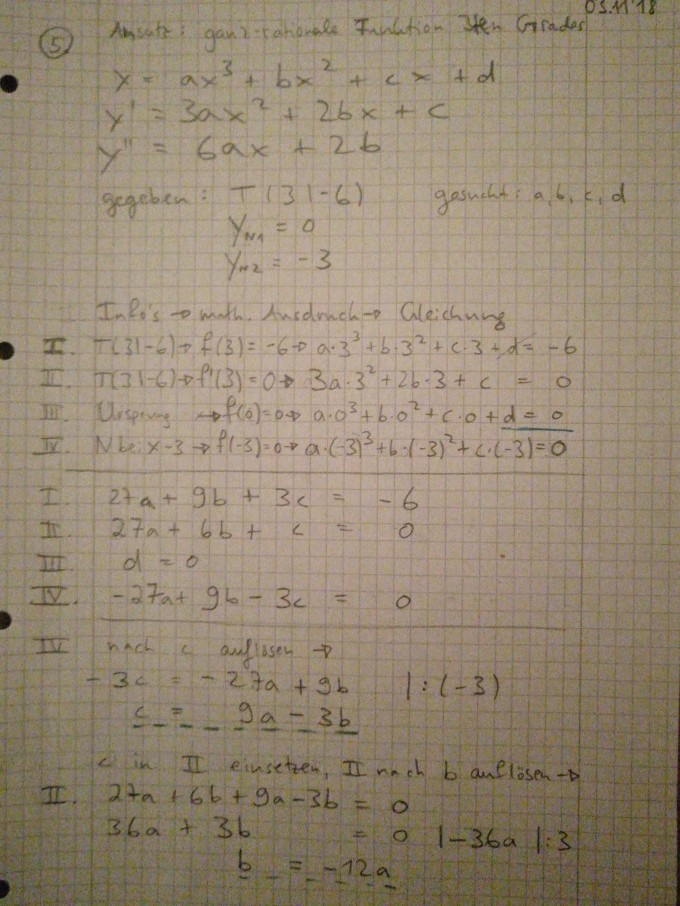 03.11.18
5. Ansatz: ganz-rationale Funktion 3ten Grades
y = ax³ + bx² + cx + d
y' = 3ax² + 2bx + c
y'' = 6ax + 2b
gegeben: T(3|-6) gesucht: a, b, c, d
yN1 = 0
yN2 = -3
Info's → math. Ausdruch → Gleichung
I. T(3|-6) → f(3) = -6 → a·3³ + b·3² + c·3 + d = -6
II. T(3|-6) → f'(3) = 0 → 3a·3² + 2b·3 + c = 0
III. Ursprung → f(0) = 0 → a·0³ + b·0² + c·0 + d = 0
IV. N bei x-3 → f(-3) = 0 → a·(-3)³ + b·(-3)² + c·(-3) = 0
I. 27a + 9b + 3c = -6
II. 27a + 6b + c = 0
III d = 0
IV. -27a + 9b - 3c = 0
IV nach c auflösen →
-3c = -27a + 9b |:(-3)
c = 9a - 3b
c in II einsetzen, II nach b auflösen →
II. 27a + 6b + 9a - 3b = 0
36a + 3b = 0 |-36a |:3
b = -12a